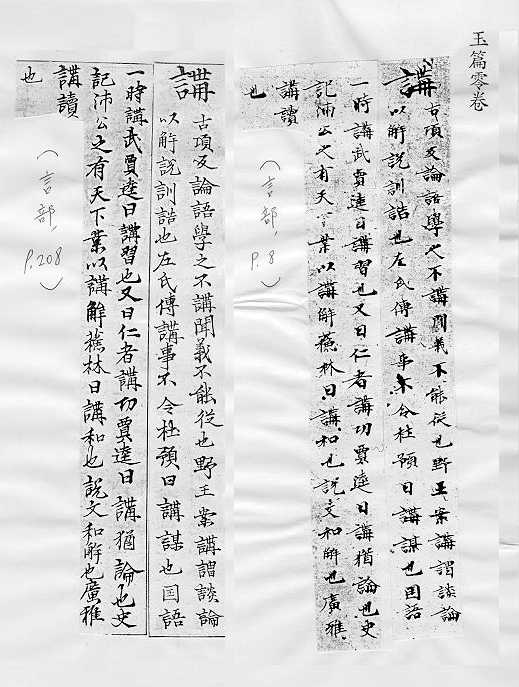 玉篇零卷
講古項反論語學之不講聞義不能從也野王案講謂談論
以解說訓詁也左氏傳講事不令杜預曰講謀也国語
一時講武賈逵曰講習也又曰仁者講功賈逵曰講猶論也史
記沛公之有天下業以講解蘓林曰講和也說文和解也廣雅
講讀
也
(言部, P.8)
講古項反論語學之不講聞義不能從也野王案講謂談論
以解說訓詁也左氏傳講事不令杜預曰講謀也囯語
一時講武賈逵曰講習也又曰仁者講功賈逵曰講猶論也史
記沛公之有天下業以講解蕉林曰講和也說文和解也廣雅
講讀
也
(言部, P.208)